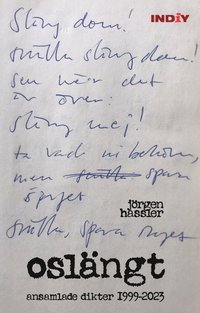 INDIY
Släng dom!
snälla släng dom!
sen när det
är över:
släng mej!
ta vad ni behöv,
men spara
snälla, spara
jörgen
hassler
oslängt
ansamlade dikter 1999-2023